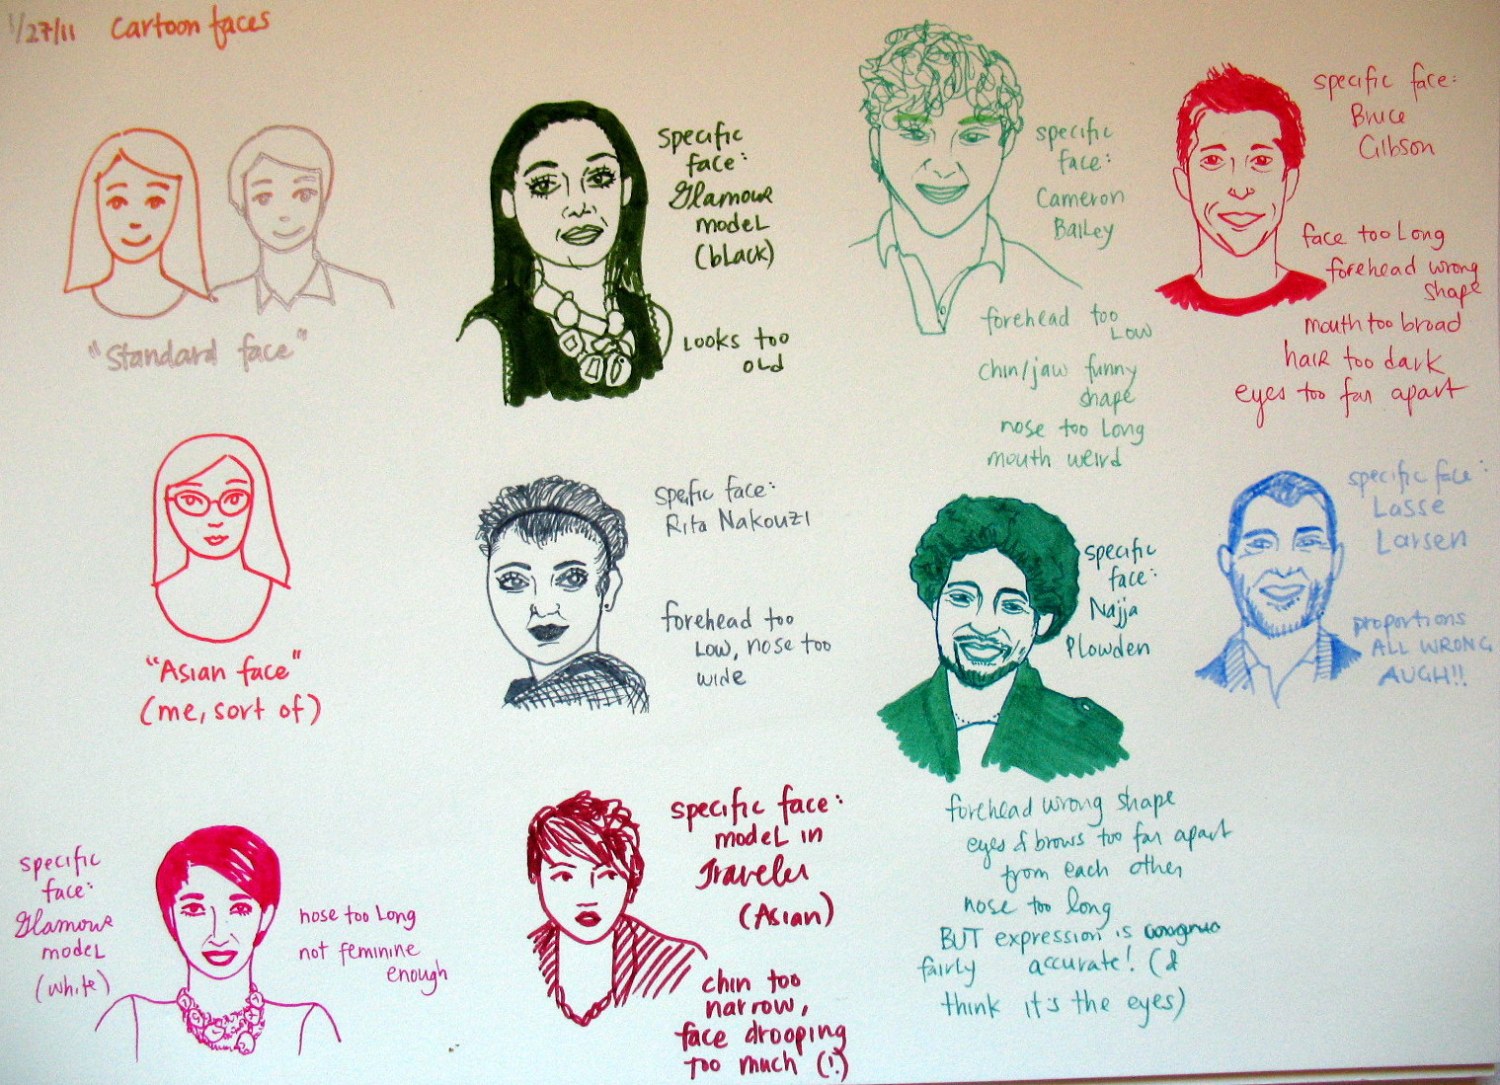 1/27/11 Cartoon faces
"Standard face"
specific
face:
Glamour
model
(black)
Looks too
old
specific
face:
Cameron
Bailey
forehead too
Low
chin/jaw funny
shape
nose too Long
mouth weird
specific face:
Bruce
Gibson
face too Long
forehead wrong
shape
mouth too broad
hair too dark
eyes too far apart
"Asian face"
(me, sort of)
speific face:
Rita Nakouzi
forehead too
Low, nose too
wide
specific
face:
Najja
Plowden
forehead wrong shape
eyes & brows too far apart
from each other
nose too long
BUT expression is
fairly accurate! (I
think it's the eyes)
specific face:
Lasse
Larsen
proportions
ALL WRONG
AUGH!!
specific
face:
Glamour
model
(white)
nose too Long
not feminine
enough
specific face:
model in
Traveler
(Asian)
chin too
narrow,
face drooping
too much (!)